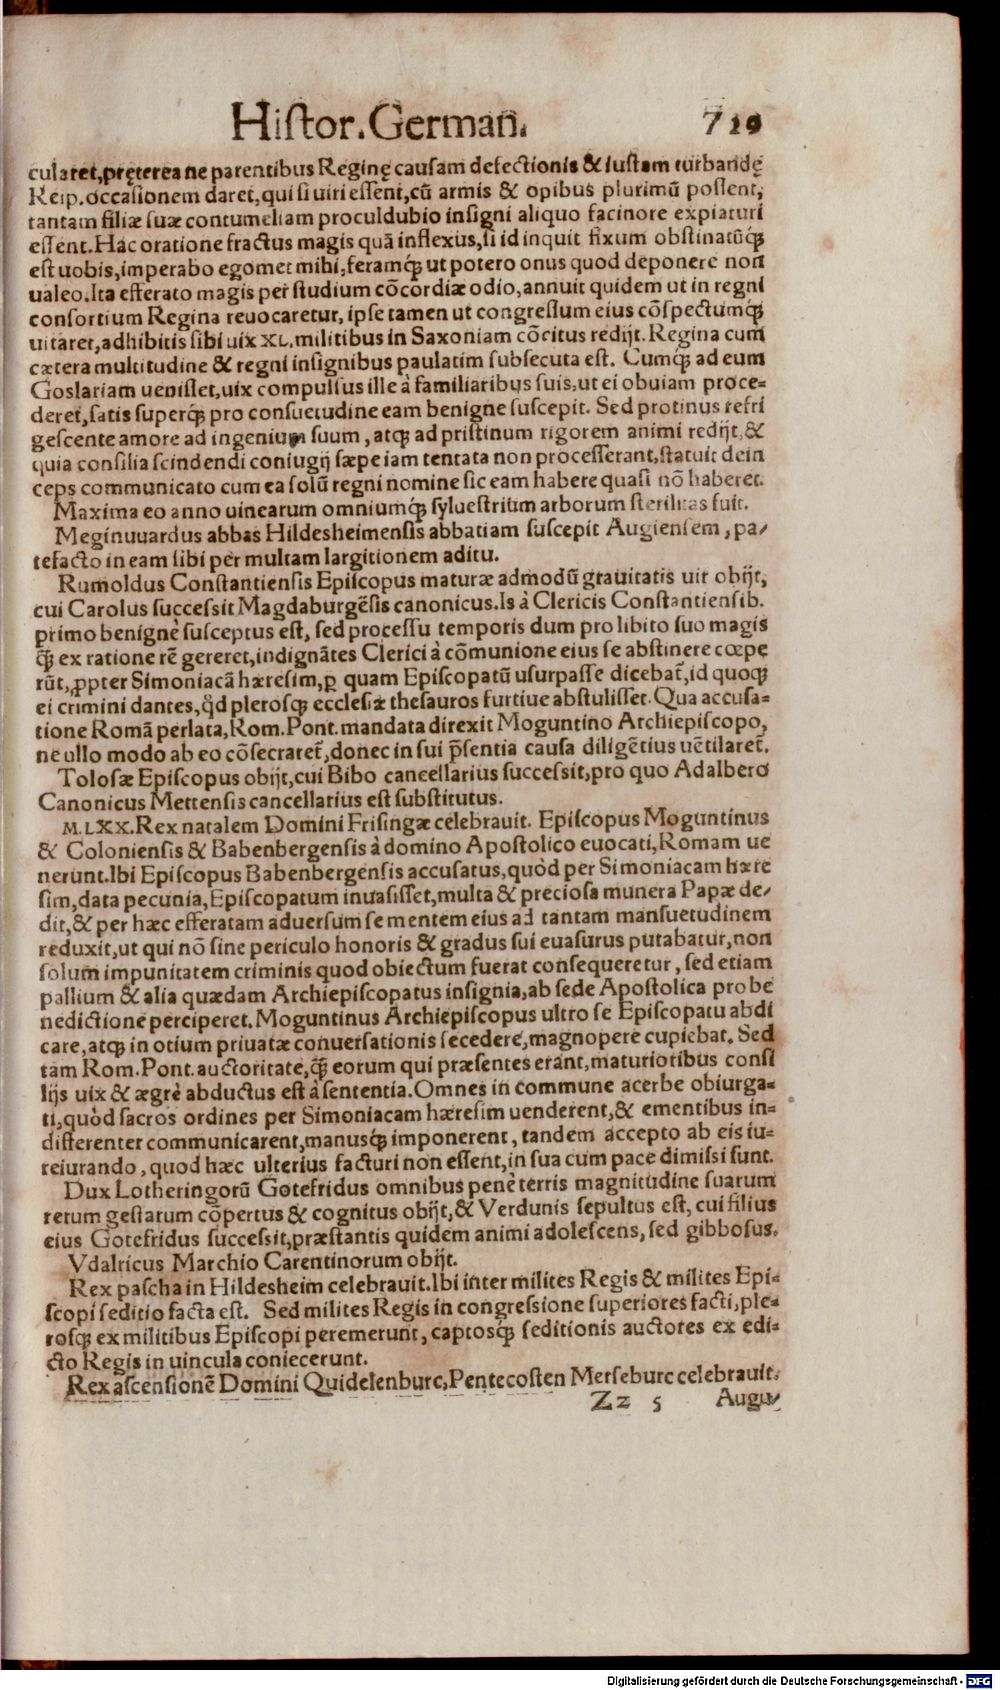 Histor. German. 719
cularet, pręterea ne parentibus Reginę causam defectionis & iustam turbandę
Reip. occasionem daret, qui si uiri essent, cū armis & opibus plurimū possent,
tantam filiæ suæ contumeliam proculdubio insigni aliquo facinore expiaturi
essent. Hac oratione fractus magis quā inflexus, si id inquit fixum obstinatūq́;
est uobis, imperabo egomet mihi, feramq́; ut potero onus quod deponere non
ualeo. Ita efferato magis per studium cōcordiæ odio, annuit quidem ut in regni
consortium Regina reuocaretur, ipse tamen ut congressum eius cōspectumq́;
uitaret, adhibitis sibi uix XL. militibus in Saxoniam cōcitus redijt. Regina cum
cætera multitudine & regni insignibus paulatim subsecuta est. Cumq́; ad eum
Goslariam uenisset, uix compulsus ille à familiaribus suis, ut ei obuiam proce=
deret, satis superq́; pro consuetudine eam benigne suscepit. Sed protinus refri
gescente amore ad ingenium suum, atq; ad pristinum rigorem animi redijt, &
quia consilia scindendi coniugij sæpe iam tentata non processerant, statuit dein
ceps communicato cum ea solū regni nomine sic eam habere quasi nō haberet.
Maxima eo anno uinearum omniumq́; syluestrium arborum sterilitas fuit.
Meginuuardus abbas Hildesheimensis abbatiam suscepit Augiensem, pa/
tefacto in eam sibi per multam largitionem aditu.
Rumoldus Constantiensis Episcopus maturæ admodū grauitatis uir obijt,
cui Carolus successit Magdaburgēsis canonicus. Is à Clericis Constantiensib.
primo benignè susceptus est, sed processu temporis dum pro libito suo magis
q̄ ex ratione rē gereret, indignātes Clerici à cōmunione eius se abstinere cœpe
rūt, ꝓpter Simoniacā hæresim, ꝑ quam Episcopatū usurpasse dicebat̄, id quoq;
ei crimini dantes, qd́ plerosq; ecclesiæ thesauros furtiue abstulisset. Qua accusa=
tione Romā perlata, Rom. Pont. mandata direxit Moguntino Archiepiscopo,
ne ullo modo ab eo cōsecraret̄, donec in sui p̄sentia causa diligētius uētilaret̄.
Tolosæ Episcopus obijt, cui Bibo cancellarius successit, pro quo Adalbero
Canonicus Mettensis cancellarius est substitutus.
M.LXX. Rex natalem Domini Frisingæ celebrauit. Episcopus Moguntinus
& Coloniensis & Babenbergensis à domino Apostolico euocati, Romam ue
nerunt. Ibi Episcopus Babenbergensis accusatus, quòd per Simoniacam hære
sim, data pecunia, Episcopatum inuasisset, multa & preciosa munera Papæ de/
dit, & per hæc efferatam aduersum se mentem eius ad tantam mansuetudinem
reduxit, ut qui nō sine periculo honoris & gradus sui euasurus putabatur, non
solum impunitatem criminis quod obiectum fuerat consequeretur, sed etiam
pallium & alia quædam Archiepiscopatus insignia, ab sede Apostolica pro be
nedictione perciperet. Moguntinus Archiepiscopus ultro se Episcopatu abdi
care, atq; in otium priuatæ conuersationis secedere, magnopere cupiebat. Sed
tam Rom. Pont. auctoritate, q̄ eorum qui præsentes erant, maturioribus consi
lijs uix & ægrè abductus est à sententia. Omnes in commune acerbe obiurga=
ti, quòd sacros ordines per Simoniacam hæresim uenderent, & ementibus in=
differenter communicarent, manusq́; imponerent, tandem accepto ab eis iu=
reiurando, quod hæc ulterius facturi non essent, in sua cum pace dimissi sunt.
Dux Lotheringorū Gotefridus omnibus penè terris magnitudine suarum
rerum gestarum cōpertus & cognitus obijt, & Verdunis sepultus est, cui filius
eius Gotefridus successit, præstantis quidem animi adolescens, sed gibbosus.
Vdalricus Marchio Carentinorum obijt.
Rex pascha in Hildesheim celebrauit. Ibi inter milites Regis & milites Epi=
scopi seditio facta est. Sed milites Regis in congressione superiores facti, ple=
rosq; ex militibus Episcopi peremerunt, captosq́; seditionis auctores ex edi=
cto Regis in uincula coniecerunt.
Rex ascensionē Domini Quidelenburc, Pentecosten Merseburc celebrauit.
Zz 5 Augu/
Digitalisierung gefördert durch die Deutsche Forschungsgemeinschaft - DFG